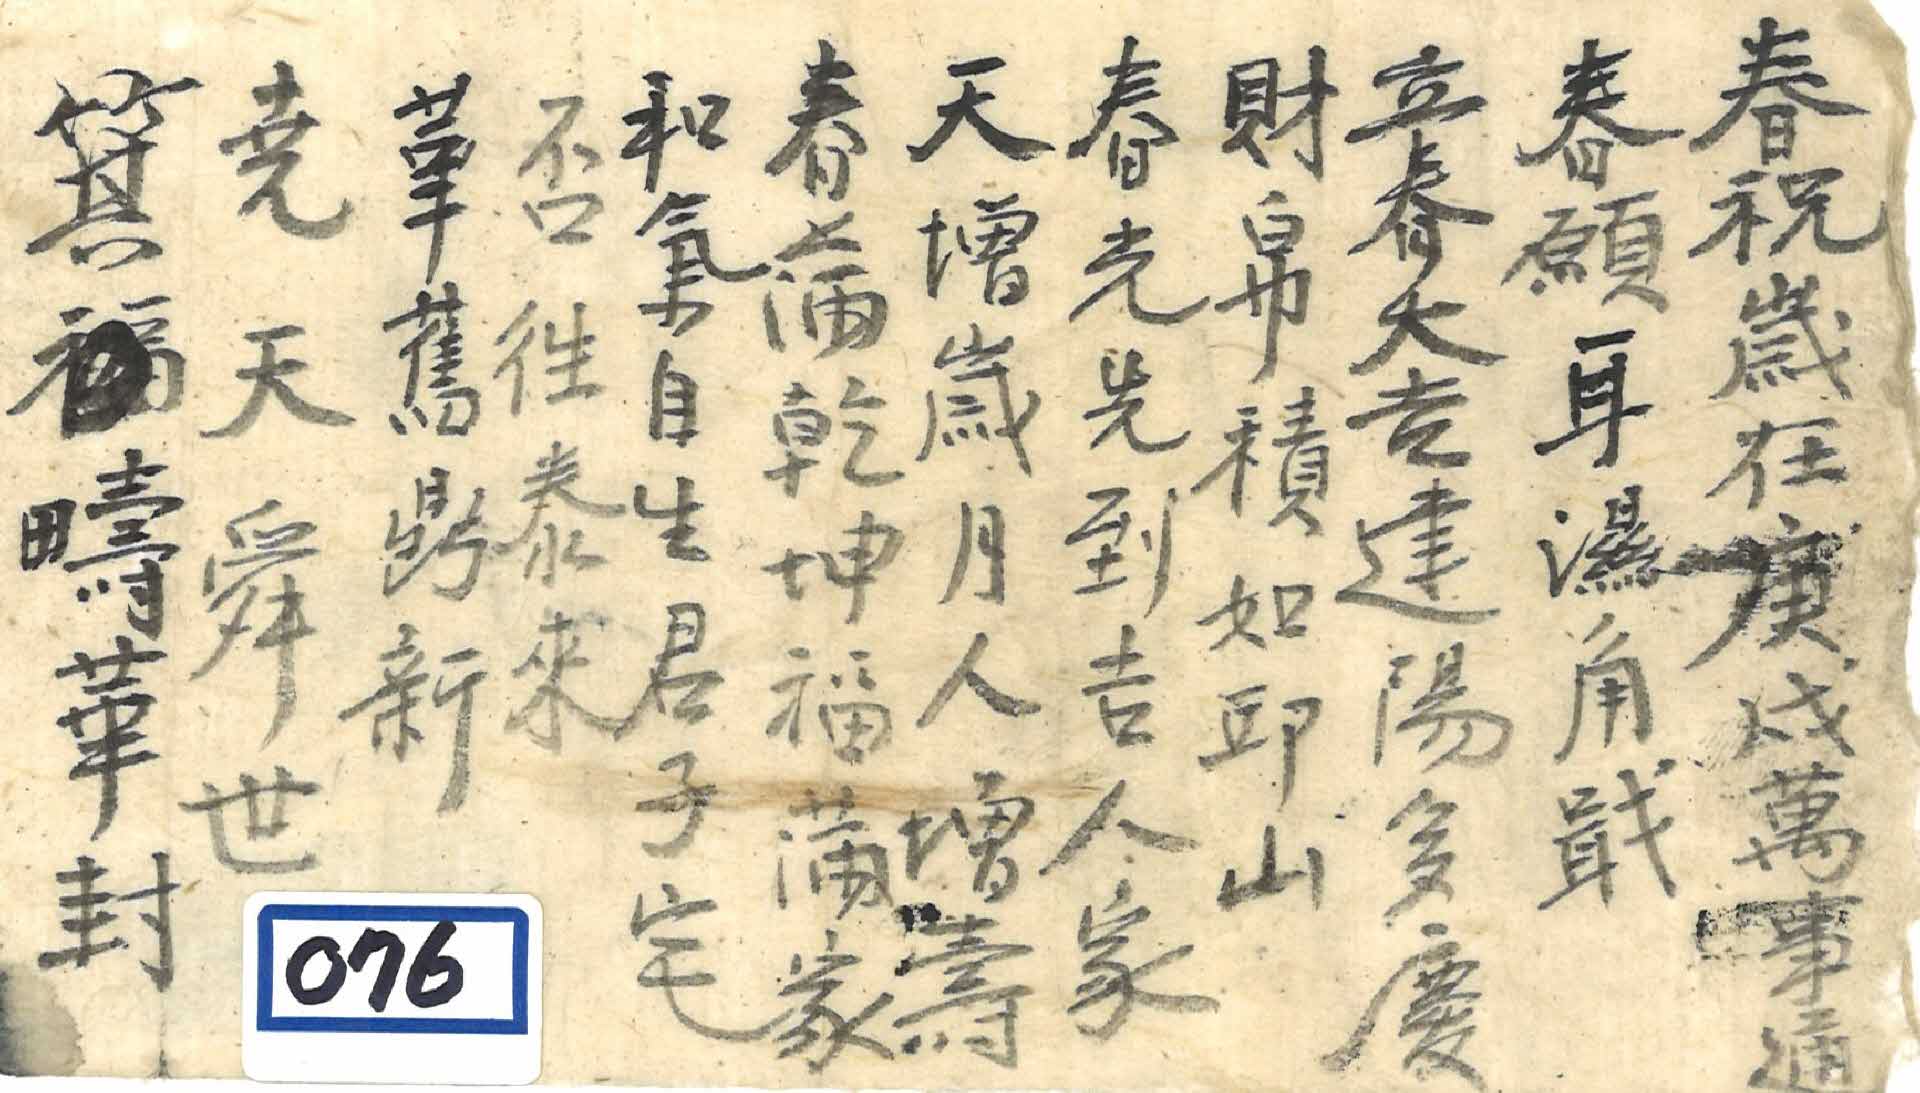 春祝歲在庚戌萬事通
春願耳濕角戢
立春大吉建陽多慶
財帛積如邱山
春光先到吉人家
天增歲月人增壽
春滿乾坤福滿家
和氣自生君子宅
否往泰來
革舊鼎新
堯天舜世
箕福疇華封
076